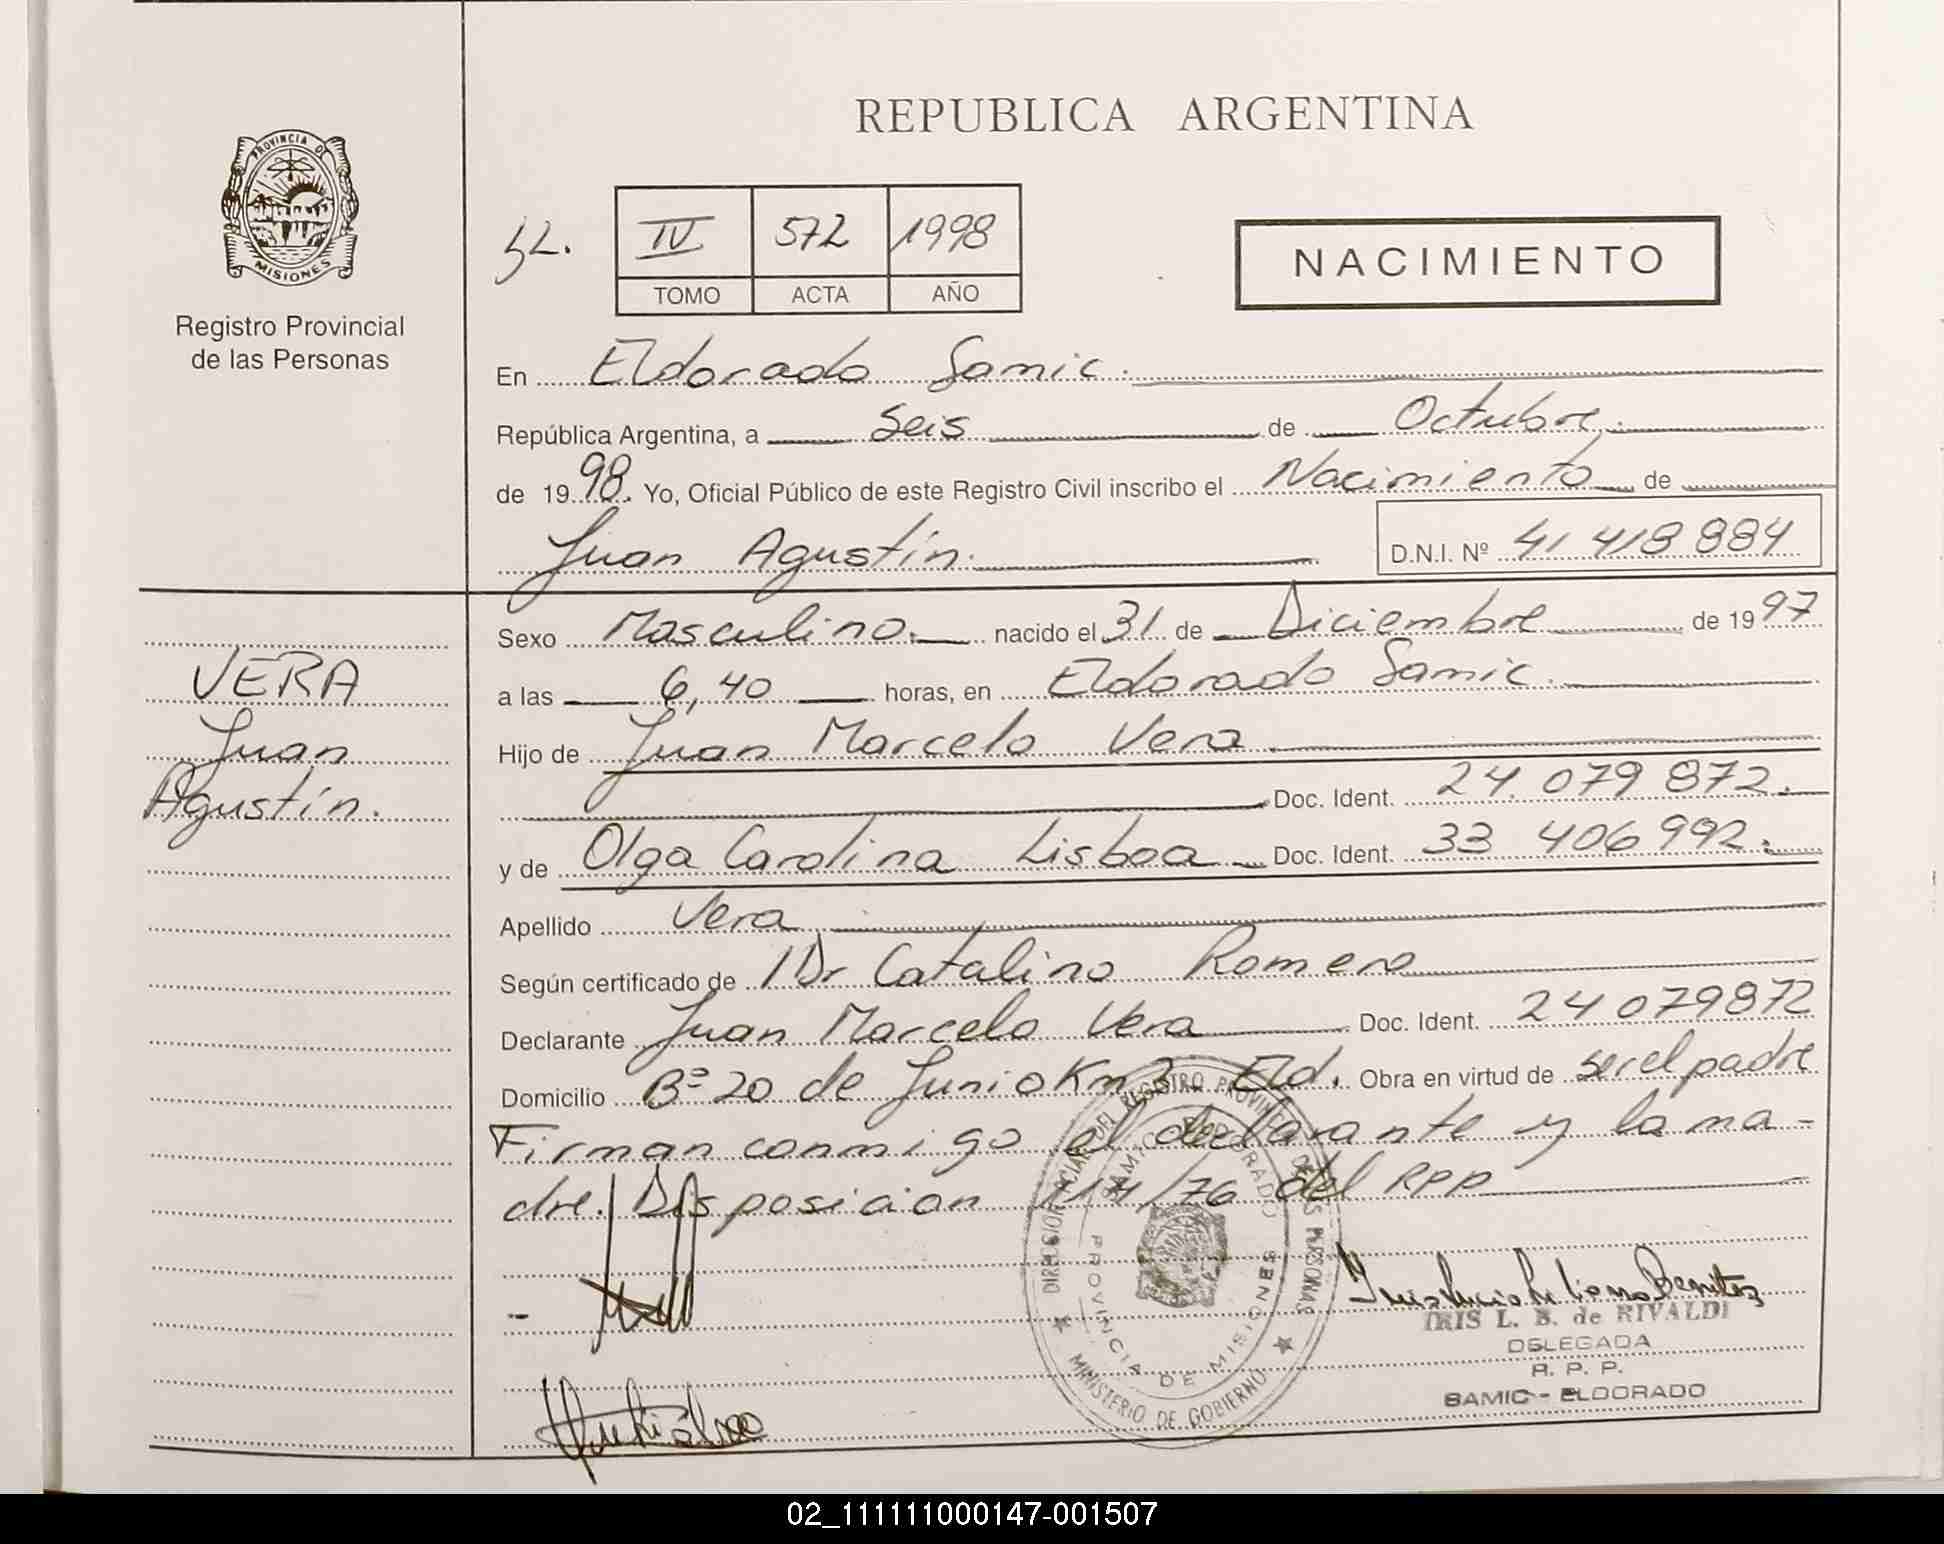 REPUBLICA ARGENTINA
PROVINCIA DE
MISIONES
Registro Provincial
de las Personas
52. IV 572 1998
TOMO ACTA AÑO
NACIMIENTO
En Eldorado Samic.
República Argentina, a Seis de Octubre.
de 1998. Yo, Oficial Público de este Registro Civil inscribo el Nacimiento de
Juan Agustín. D.N.I. Nº 41 418 884
VERA
Juan
Agustín.
Sexo Masculino. nacido el 31 de Diciembre de 1997
a las 6,40 horas, en Eldorado Samic.
Hijo de Juan Marcelo Vera.
Doc. Ident. 24.079 872.
y de Olga Carolina Lisboa Doc. Ident. 33 406 992.
Apellido Vera
Según certificado de Dr Catalino Romero
Declarante Juan Marcelo Vera Doc. Ident. 24 079872
Domicilio Bº 20 de Junio Km 3 Eld. Obra en virtud de ser el padre
Firman conmigo el declarante y la ma-
dre. Disposicion 114/76 del RPP
DIRECCION PROVINCIAL DEL REGISTRO PROVINCIAL DE LAS PERSONAS
SAMIC ELDORADO
PROVINCIA DE MISIONES
MINISTERIO DE GOBIERNO
IRIS L. B. de RIVALDI
DELEGADA
R. P. P.
SAMIC - ELDORADO
02_111111000147-001507